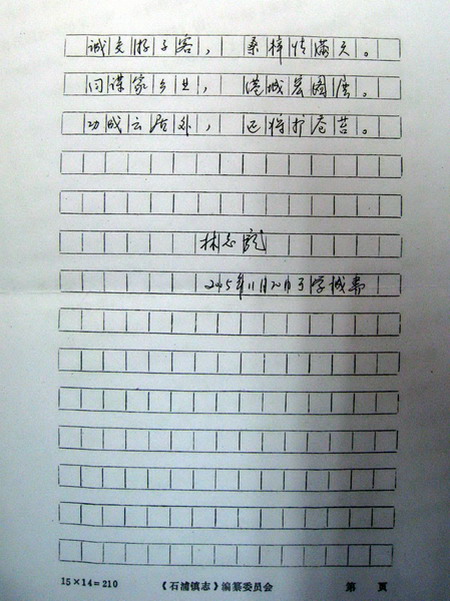 诚交游子客，桑梓情满天。
同谋家乡业，港城宏图展。
功成云居外，还将打苍苔。
林志龙
2005年11月20日于学城斋
15×14=210 《石浦镇志》编纂委员会 第 页